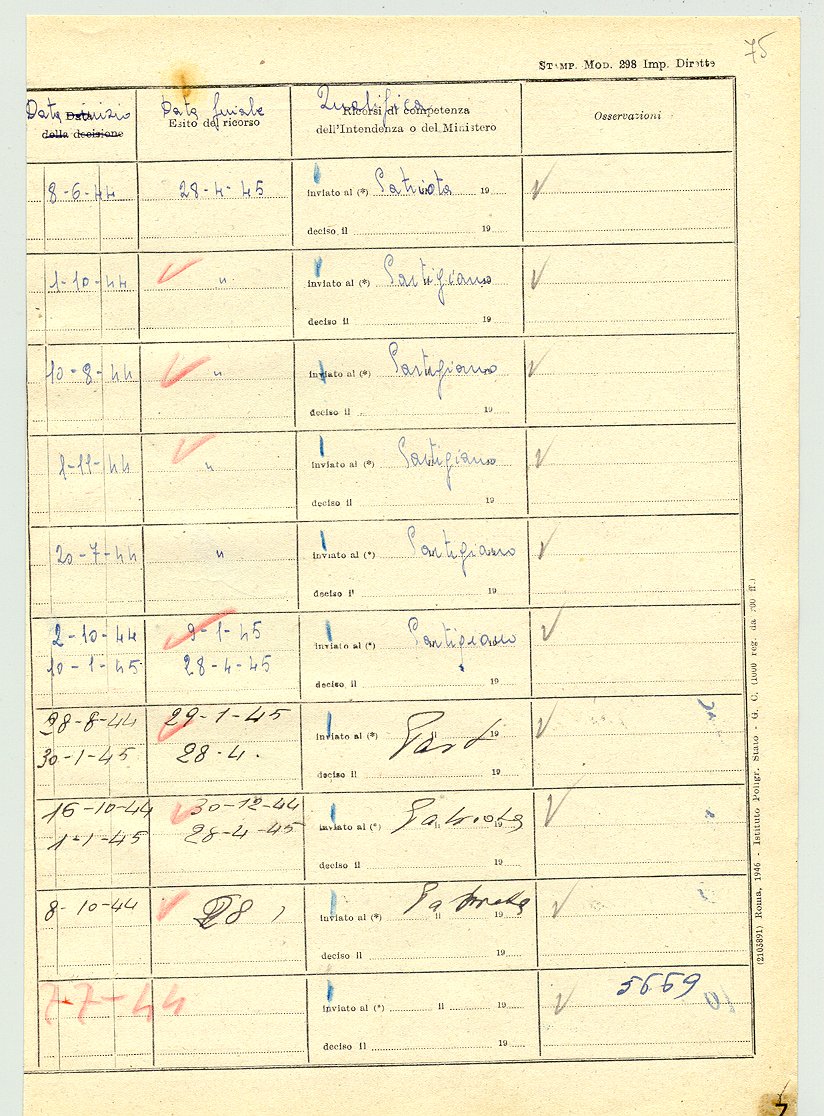 75
STAMP. MOD. 298 Imp. Dirette
Data inizio Data finale Qualifica
Data della decisione Esito del ricorso Ricorsi di competenza dell'Intendenza o del Ministero Osservazioni
8-6-44 28-4-45 inviato al (*) Patriota 19
deciso il 19
1-10-44 " inviato al (*) Partigiano
deciso il 19
10-8-44 " inviato al (*) Partigiano
deciso il 19
1-11-44 " inviato al (*) Partigiano
deciso il 19
20-7-44 " inviato al (*) Partigiano
deciso il 19
2-10-44 9-1-45 inviato al (*) Partigiano
10-1-45 28-4-45
deciso il 19
28-8-44 29-1-45 inviato al (*) Part il 19
30-1-45 28-4.
deciso il 19
16-10-44 30-12-44 inviato al (*) Patriota il 19
1-1-45 28-4-45
deciso il 19
8-10-44 28 inviato al (*) Patriota il 19
deciso il 19
7-7-44 inviato al (*) il 19 5669
deciso il 19
(2103891) Roma, 1946 - Istituto Poligr. Stato - G. C. (1000 reg. da 200 ff.)
7